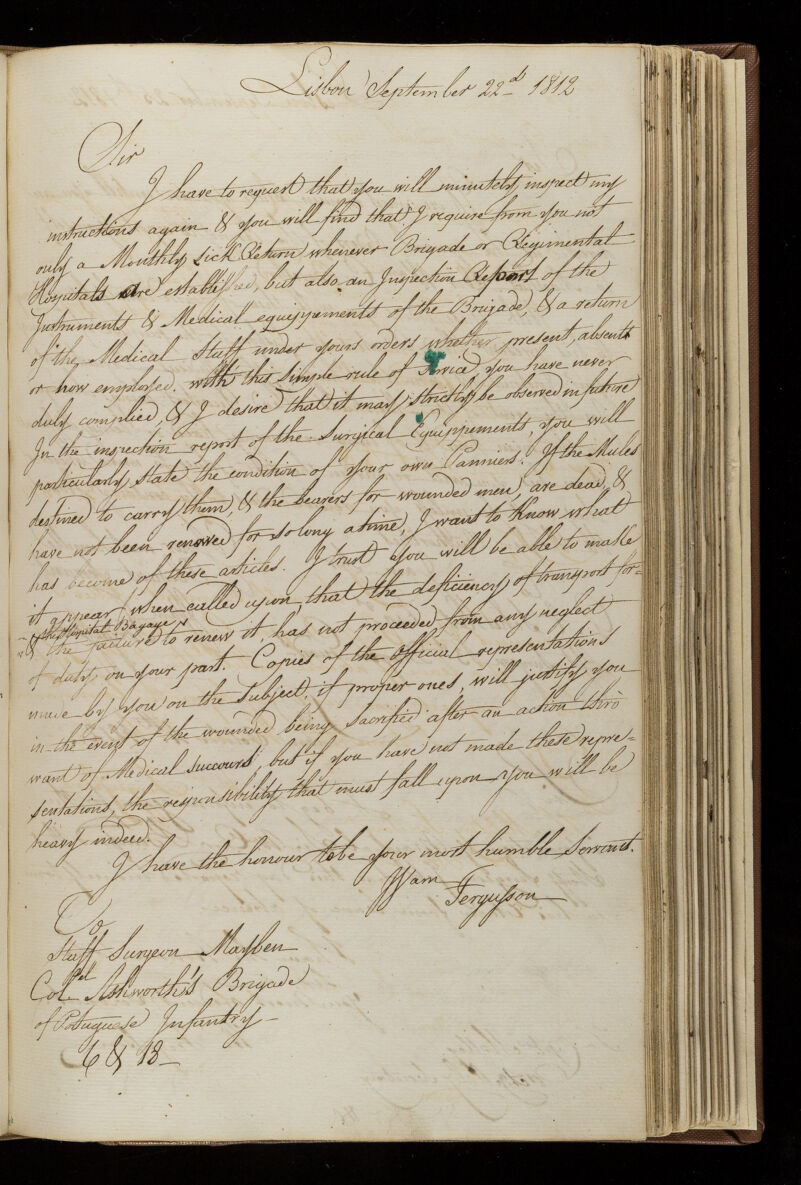 Lisbon September 22d 1812
Sir
I have to request that you will minutely inspect my
instructions again & you will find that I require from you not
only a Monthly Sick Return whenever Brigade or Regimental
Hospitals are established, but also an Inspection Report of the
Instruments & Medical equippements of the Brigade, & a return
of the Medical Staff under yours orders whether present, absent
or how employed. with this simple rule of Service, you have never
duly complied, & I desire that it may strictly be observed in future
In the inspection report of the Surgical Equippements, you will
particularly state the condition of your own Panniers. If the Mules
destined to carry them, & the bearers for wounded men, are dead, &
have not been renewed for so long a time, I want to know what
has become of these articles. I trust you will be able to make
it appear when called upon, that the deficiency of transport for=
the Hospital Bagage
& the failure to renew it, has not proceeded from any neglect
of duty on your part. Copies of the official representations
made by you on the Subject, if proper ones, will justify you
in the event of the wounded being sacrificed after an action thro
want of Medical succours, but if you have not made these repre=
sentations, the responsibility that must fall upon you will be
heavy indeed.
I have the honour to be your most humble Servant.
Wam Fergusson
To
Staff Surgeon Mayben
Col Ashworth's Brigade
of Potuguese Infantry
6 & 18